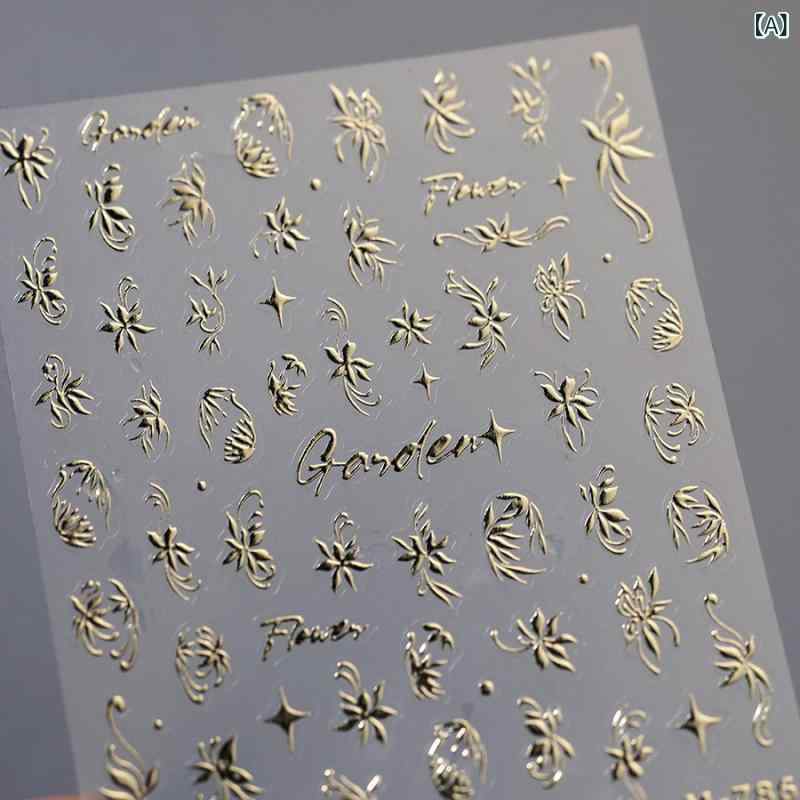 【A】
Garden
Flower
Garden
Flower